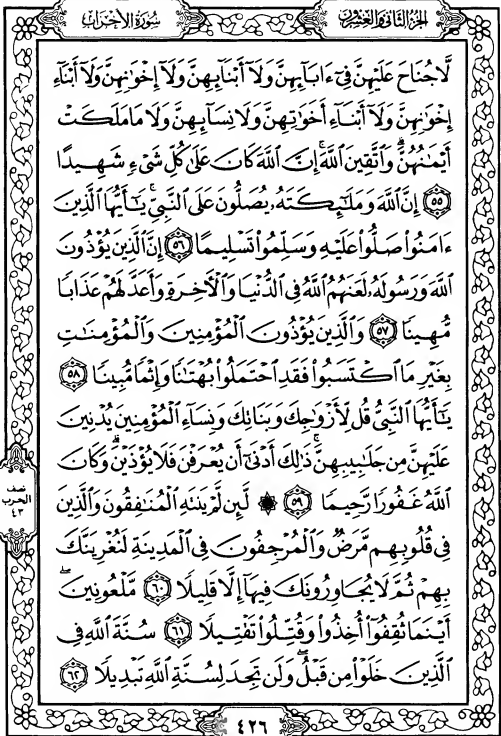 الجزء الثاني والعشرون
سورة الأحزاب
لَّا جُنَاحَ عَلَيْهِنَّ فِىٓ ءَابَآئِهِنَّ وَلَآ أَبْنَآئِهِنَّ وَلَآ إِخْوَٰنِهِنَّ وَلَآ أَبْنَآءِ
إِخْوَٰنِهِنَّ وَلَآ أَبْنَآءِ أَخَوَٰتِهِنَّ وَلَا نِسَآئِهِنَّ وَلَا مَا مَلَكَتْ
أَيْمَٰنُهُنَّۗ وَٱتَّقِينَ ٱللَّهَۚ إِنَّ ٱللَّهَ كَانَ عَلَىٰ كُلِّ شَىْءٍ شَهِيدًا
٥٥ إِنَّ ٱللَّهَ وَمَلَٰٓئِكَتَهُۥ يُصَلُّونَ عَلَى ٱلنَّبِىِّۚ يَٰٓأَيُّهَا ٱلَّذِينَ
ءَامَنُوا۟ صَلُّوا۟ عَلَيْهِ وَسَلِّمُوا۟ تَسْلِيمًا ٥٦ إِنَّ ٱلَّذِينَ يُؤْذُونَ
ٱللَّهَ وَرَسُولَهُۥ لَعَنَهُمُ ٱللَّهُ فِى ٱلدُّنْيَا وَٱلْءَاخِرَةِ وَأَعَدَّ لَهُمْ عَذَابًا
مُّهِينًا ٥٧ وَٱلَّذِينَ يُؤْذُونَ ٱلْمُؤْمِنِينَ وَٱلْمُؤْمِنَٰتِ
بِغَيْرِ مَا ٱكْتَسَبُوا۟ فَقَدِ ٱحْتَمَلُوا۟ بُهْتَٰنًا وَإِثْمًا مُّبِينًا ٥٨
يَٰٓأَيُّهَا ٱلنَّبِىُّ قُل لِّأَزْوَٰجِكَ وَبَنَاتِكَ وَنِسَآءِ ٱلْمُؤْمِنِينَ يُدْنِينَ
عَلَيْهِنَّ مِن جَلَٰبِيبِهِنَّۚ ذَٰلِكَ أَدْنَىٰٓ أَن يُعْرَفْنَ فَلَا يُؤْذَيْنَۗ وَكَانَ
ٱللَّهُ غَفُورًا رَّحِيمًا ٥٩ ۞ لَّئِن لَّمْ يَنتَهِ ٱلْمُنَٰفِقُونَ وَٱلَّذِينَ
فِى قُلُوبِهِم مَّرَضٌ وَٱلْمُرْجِفُونَ فِى ٱلْمَدِينَةِ لَنُغْرِيَنَّكَ
بِهِمْ ثُمَّ لَا يُجَاوِرُونَكَ فِيهَآ إِلَّا قَلِيلًا ٦٠ مَّلْعُونِينَۖ
أَيْنَمَا ثُقِفُوٓا۟ أُخِذُوا۟ وَقُتِّلُوا۟ تَقْتِيلًا ٦١ سُنَّةَ ٱللَّهِ فِى
ٱلَّذِينَ خَلَوْا۟ مِن قَبْلُۖ وَلَن تَجِدَ لِسُنَّةِ ٱللَّهِ تَبْدِيلًا ٦٢
نصف
الحزب
٤٣
٤٢٦